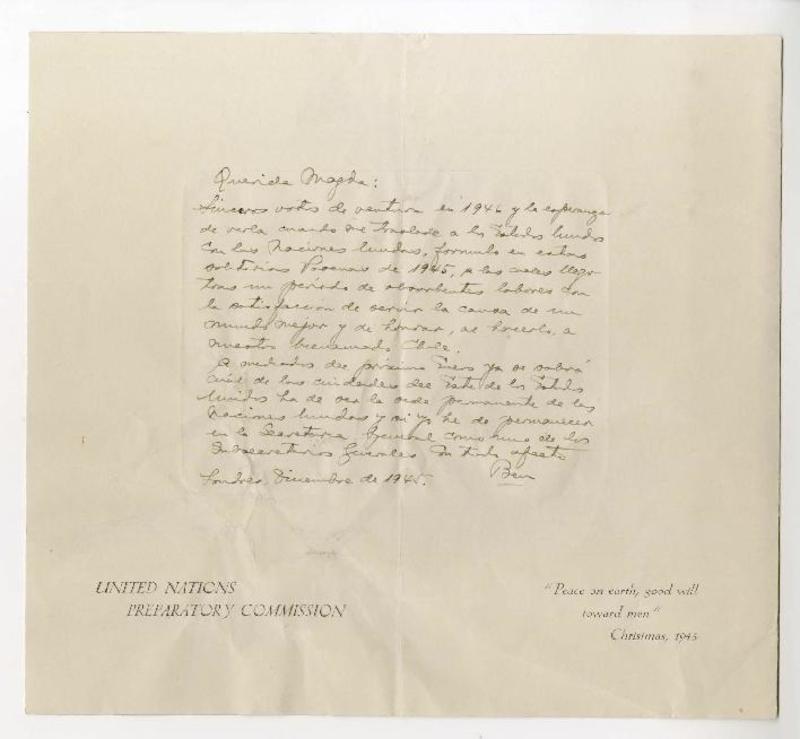 Querida Magda:
Sinceros votos de ventura en 1946 y la esperanza
de verla cuando me traslade a los Estados Unidos
con las Naciones Unidas, formulo en estas
solitarias Pascuas de 1945, a las cuales llego
tras un período de absorbentes labores con
la satisfacción de servir la causa de un
mundo mejor y de honrar, al hacerlo, a
nuestro bienamado Chile.
A mediados del próximo Enero ya se sabrá
cuál de las ciudades del Este de los Estados
Unidos ha de ser la sede permanente de las
Naciones Unidas y si yo he de permanecer
en la Secretaría General como uno de los
Subsecretarios Generales. Con todo afecto
Ben
Londres, Diciembre de 1945.
UNITED NATIONS
PREPARATORY COMMISSION
"Peace on earth, good will
toward men"
Christmas, 1945